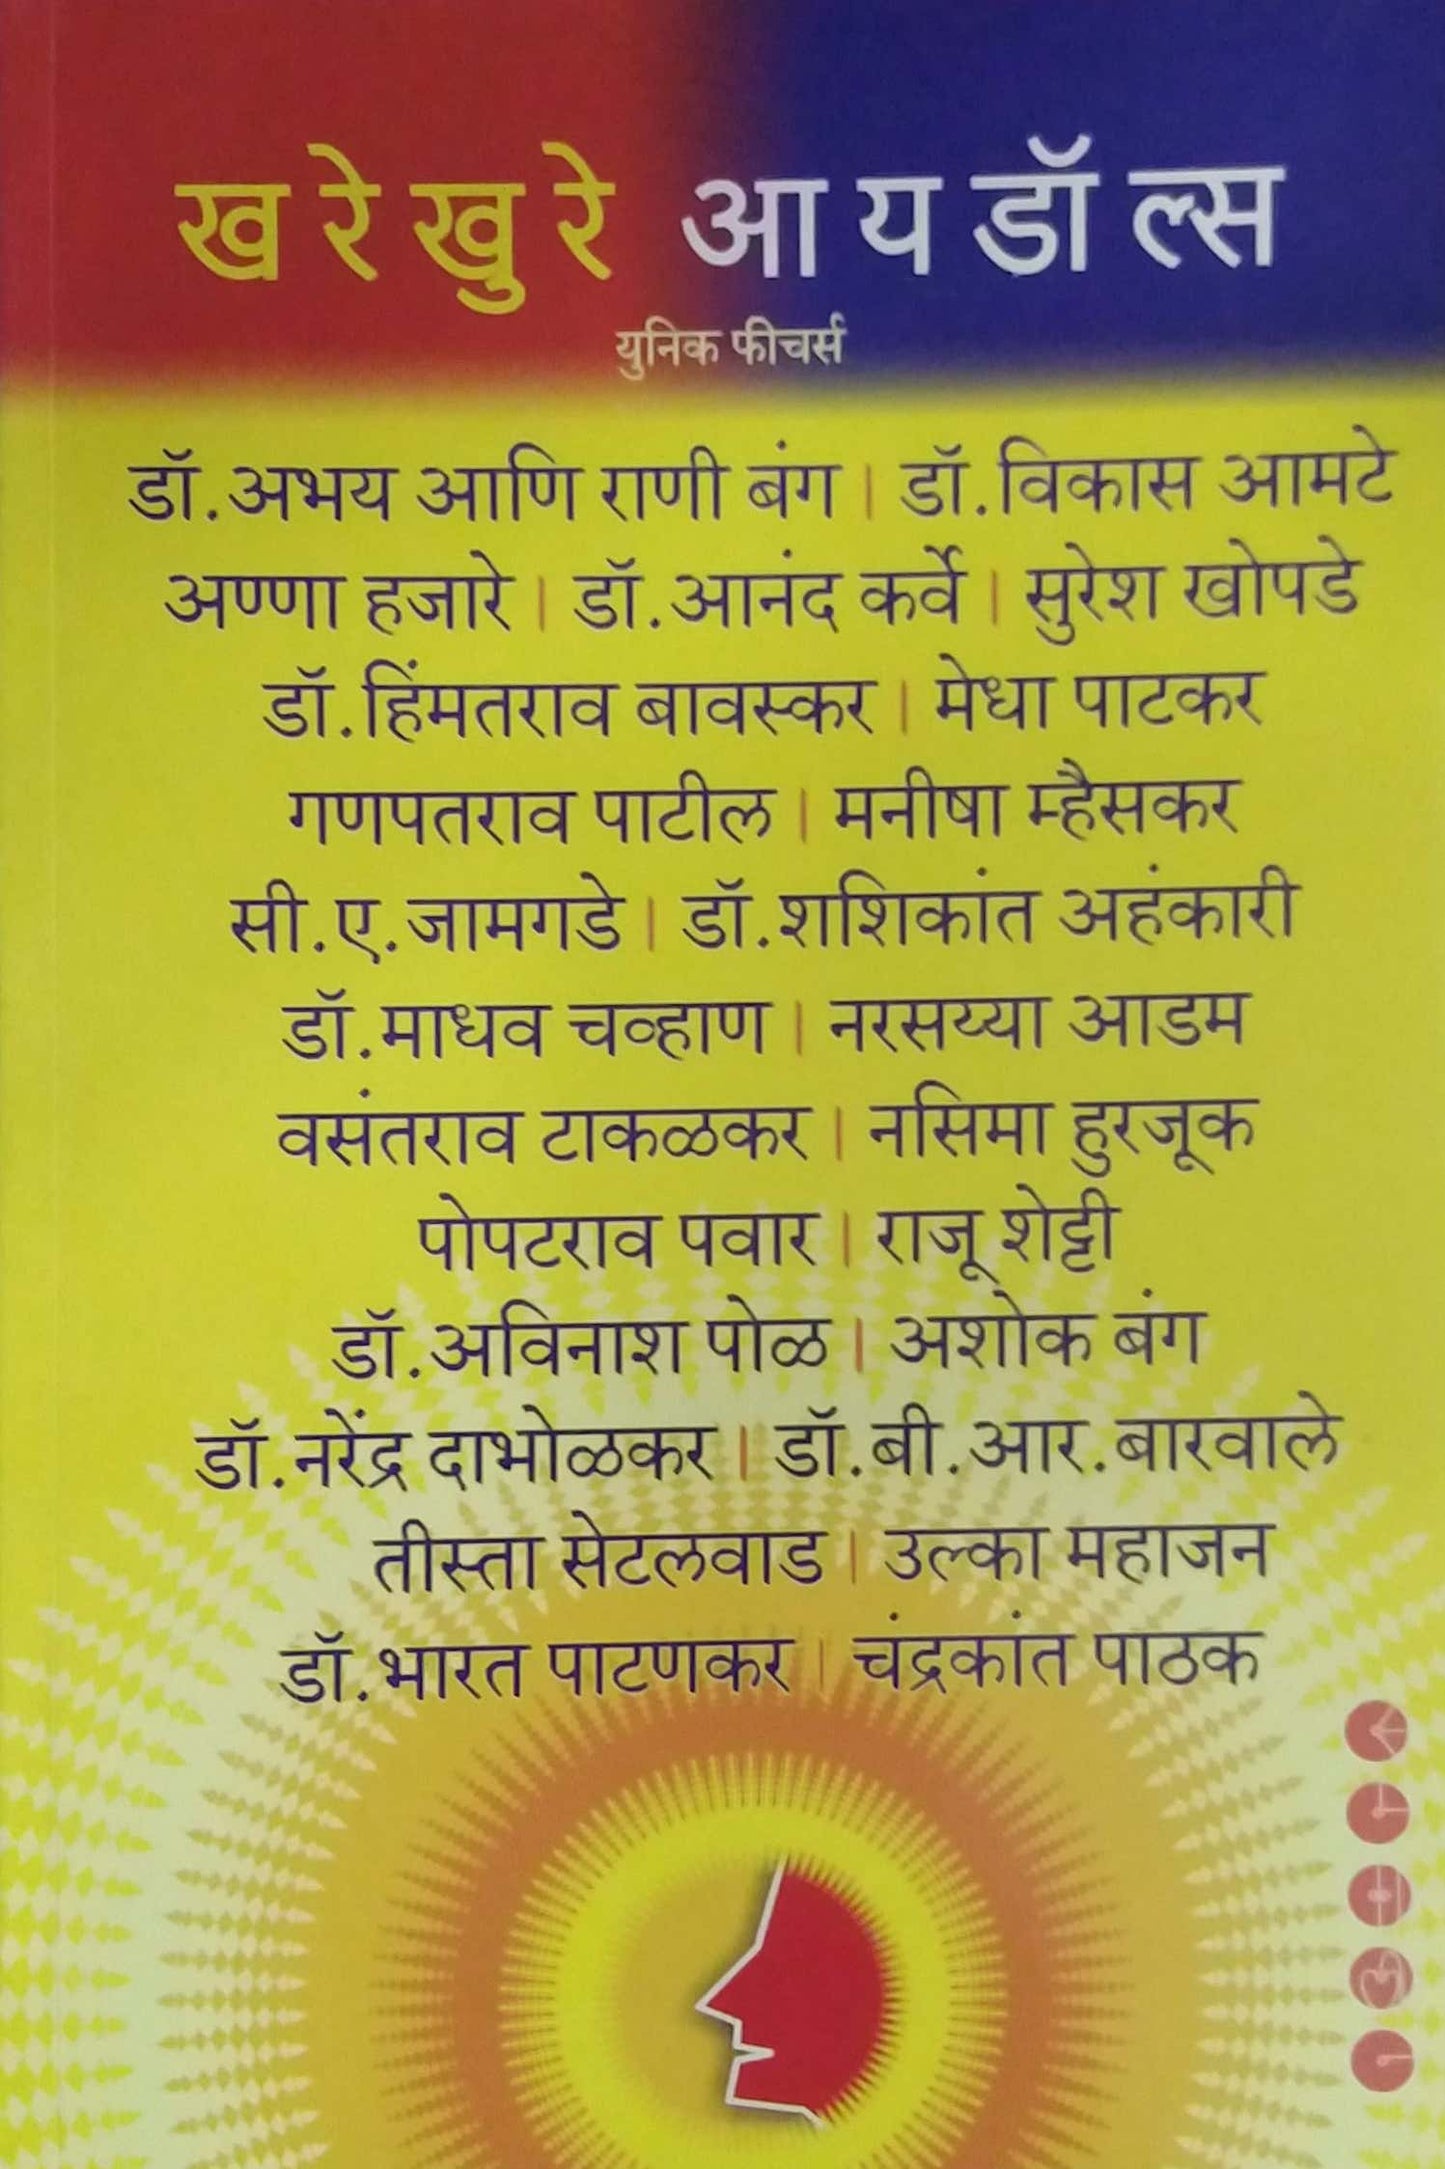 खरेखुरे आयडॉल्स
युनिक फीचर्स
डॉ.अभय आणि राणी बंग | डॉ.विकास आमटे
अण्णा हजारे | डॉ.आनंद कर्वे | सुरेश खोपडे
डॉ.हिंमतराव बावस्कर | मेधा पाटकर
गणपतराव पाटील | मनीषा म्हैसकर
सी.ए.जामगडे | डॉ.शशिकांत अहंकारी
डॉ.माधव चव्हाण | नरसय्या आडम
वसंतराव टाकळकर | नसिमा हुरजूक
पोपटराव पवार | राजू शेट्टी
डॉ.अविनाश पोळ | अशोक बंग
डॉ.नरेंद्र दाभोळकर | डॉ.बी.आर.बारवाले
तीस्ता सेटलवाड | उल्का महाजन
डॉ.भारत पाटणकर | चंद्रकांत पाठक